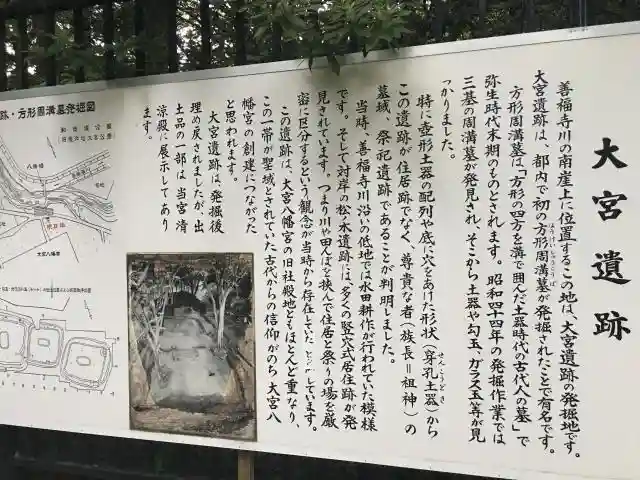 大宮遺跡
善福寺川の南崖上に位置するこの地は、大宮遺跡の発掘地です。
大宮遺跡は、都内で初の方形周溝墓が発掘されたことで有名です。
ほうけいしゅうこうぼ
方形周溝墓は「方形の四方を溝で囲んだ土器時代の古代人の墓」で
弥生時代末期のものとされます。昭和四十四年の発掘作業では
三基の周溝墓が発見され、そこから土器や勾玉、ガラス玉等が見
つかりました。
特に壺形土器の配列や底に穴をあけた形状(穿孔土器)から
せんこうどき
この遺跡が住居跡でなく、尊貴な者(族長=祖神)の
墓域、祭祀遺跡であることが判明しました。
当時、善福寺川沿いの低地では水田耕作が行われていた模様
です。そして対岸の松ノ木遺跡には多くの竪穴式住居跡が発
見されています。つまり川や田んぼを挟んで住居と祭りの場を厳
密に区分するという観念が当時から存在していた
しています。
この遺跡は、大宮八幡宮の旧社殿地ともほとんど重なり、
この一帯が聖域とされていた古代からの信仰がのち大宮八
幡宮の創建につながった
と思われます。
大宮遺跡は、発掘後
埋め戻されましたが、出
土品の一部は当宮清
涼殿に展示してあり
ます。
跡・方形周溝墓発掘図
和田堀公園
八幡橋
大宮八幡宮